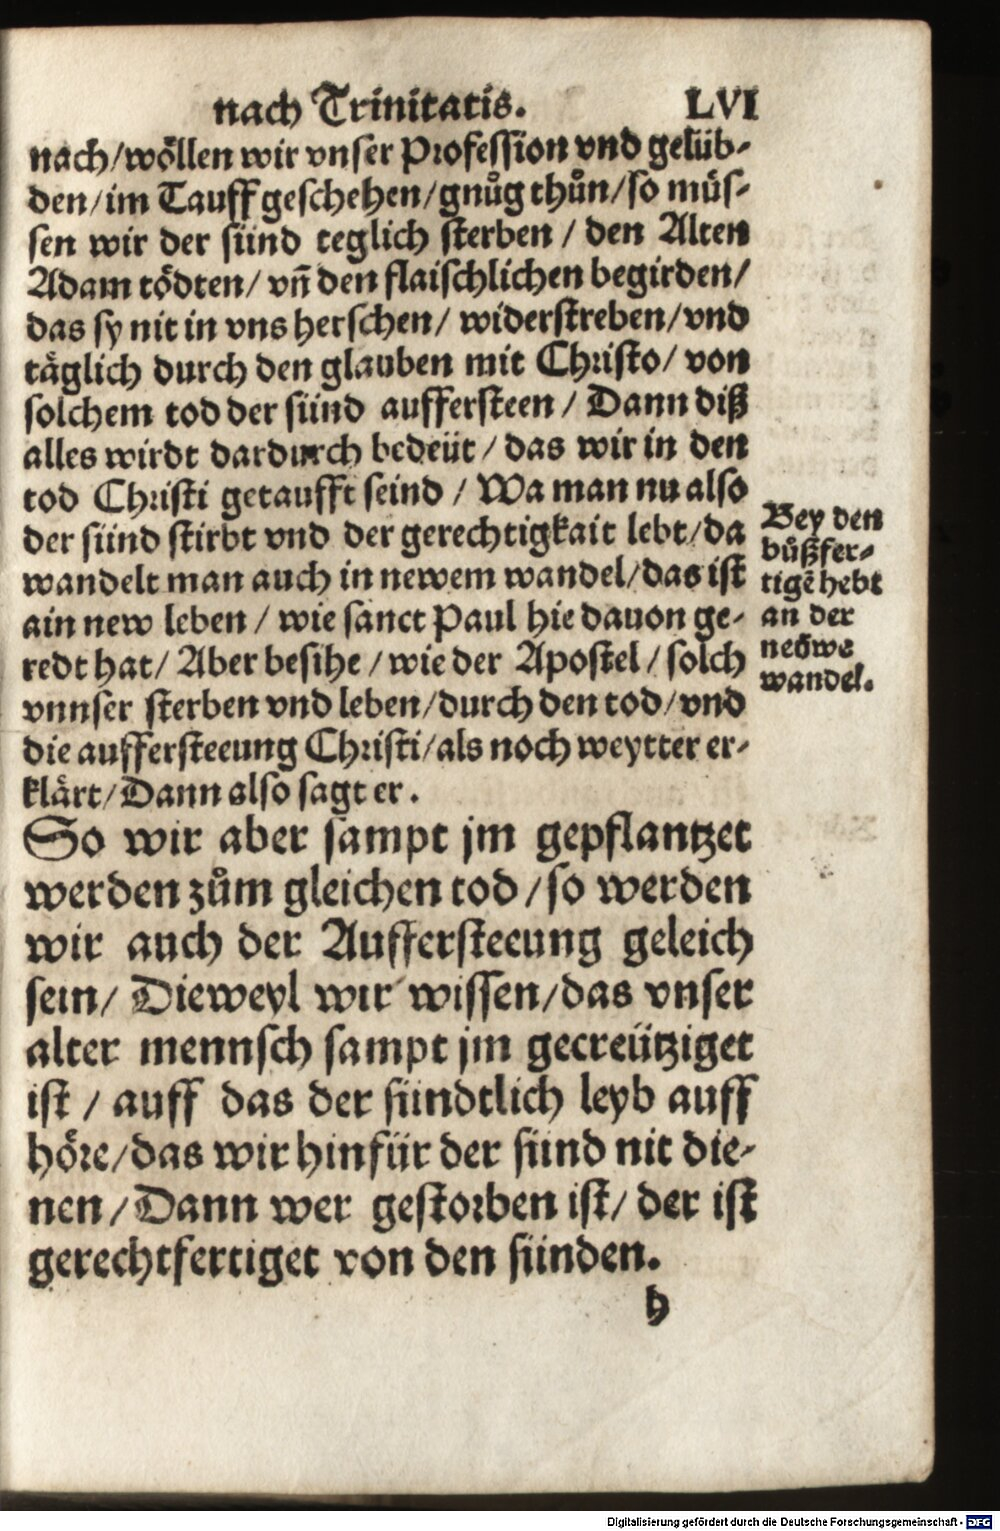 nach Trinitatis. LVI
nach/wöllen wir vnser Profession vnd gelüb-
den/im Tauff geschehen/gnůg thůn/so müs-
sen wir der sünd teglich sterben / den Alten
Adam tödten/ vn̄ den flaischlichen begirden/
das sy nit in vns herschen/ widerstreben/vnd
täglich durch den glauben mit Christo/ von
solchem tod der sünd auffersteen / Dann diß
alles wirdt dardurch bedeüt / das wir in den
tod Christi getaufft seind / Wa man nu also
der sünd stirbt vnd der gerechtigkait lebt/da
wandelt man auch in newem wandel/das ist
ain new leben / wie sanct Paul hie dauon ge-
redt hat/ Aber besihe / wie der Apostel / solch
vnnser sterben vnd leben/durch den tod/vnd
die auffersteeung Christi/als noch weytter er-
klärt/Dann also sagt er.
Bey den
bůßfer-
tigē hebt
an der
newe
wandel.
So wir aber sampt jm gepflantzet
werden zům gleichen tod/so werden
wir auch der Auffersteeung geleich
sein/ Dieweyl wir wissen/das vnser
alter mennsch sampt jm gecreütziget
ist / auff das der sündtlich leyb auff
höre/das wir hinfür der sünd nit die-
nen/Dann wer gestorben ist/ der ist
gerechtfertiget von den sünden.
h
Digitalisierung gefördert durch die Deutsche Forschungsgemeinschaft - DFG